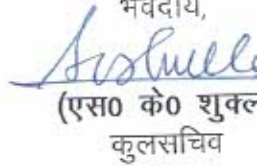 भवदीय,
(एस0 के0 शुक्ल
कुलसचिव